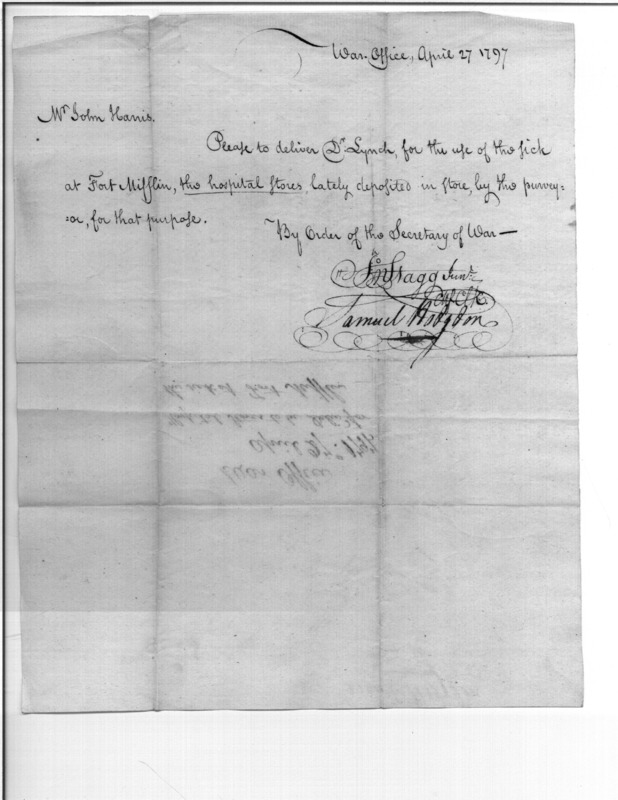 War Office, April 27 1797
Mr John Harris.
Please to deliver Dr Lynch, for the use of the sick
at Fort Mifflin, the hospital stores, lately deposited in store, by the purvey=
=or, for that purpose.
By Order of the Secretary of War —
Jno Stagg Junr
Ch Clk
Samuel Hodgdon
April 27th 1797
War Office